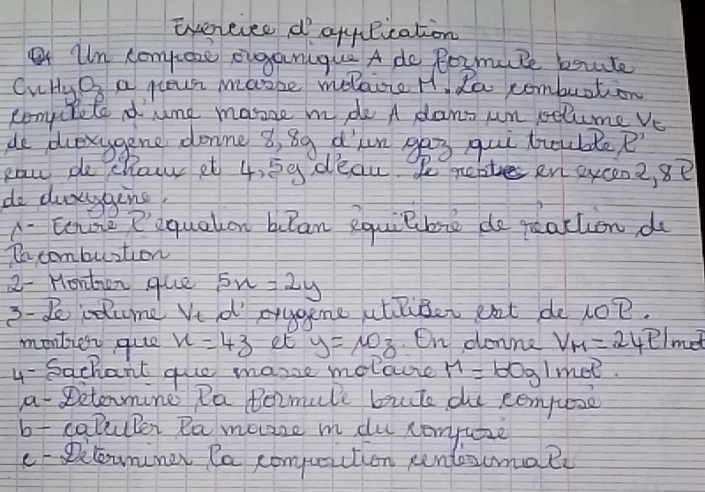 Exercice d'application
Un composé organique A de formule brute
CxHyOz a pour masse molaire M. La combustion
complète d'une masse m de A dans un volume Vt
de dioxygène donne 8,8g d'un gaz qui trouble l'
eau de chaux et 4,5g d'eau. Le reste en excès 2,8l
de dioxygène.
1- Ecrire l'equation bilan équilibré de réaction de
la combustion
2- Montrer que 5x = 2y
3- Le volume Vt d'oxygène utiliser est de 10l.
montrer que x = 4z et y = 10z. On donne VM = 24l/mol
4- Sachant que masse molaire M = 60g/mol.
a- Détermine la formule brute du composé
b- calculer la masse m du composé
c- Déterminer la composition centésimale